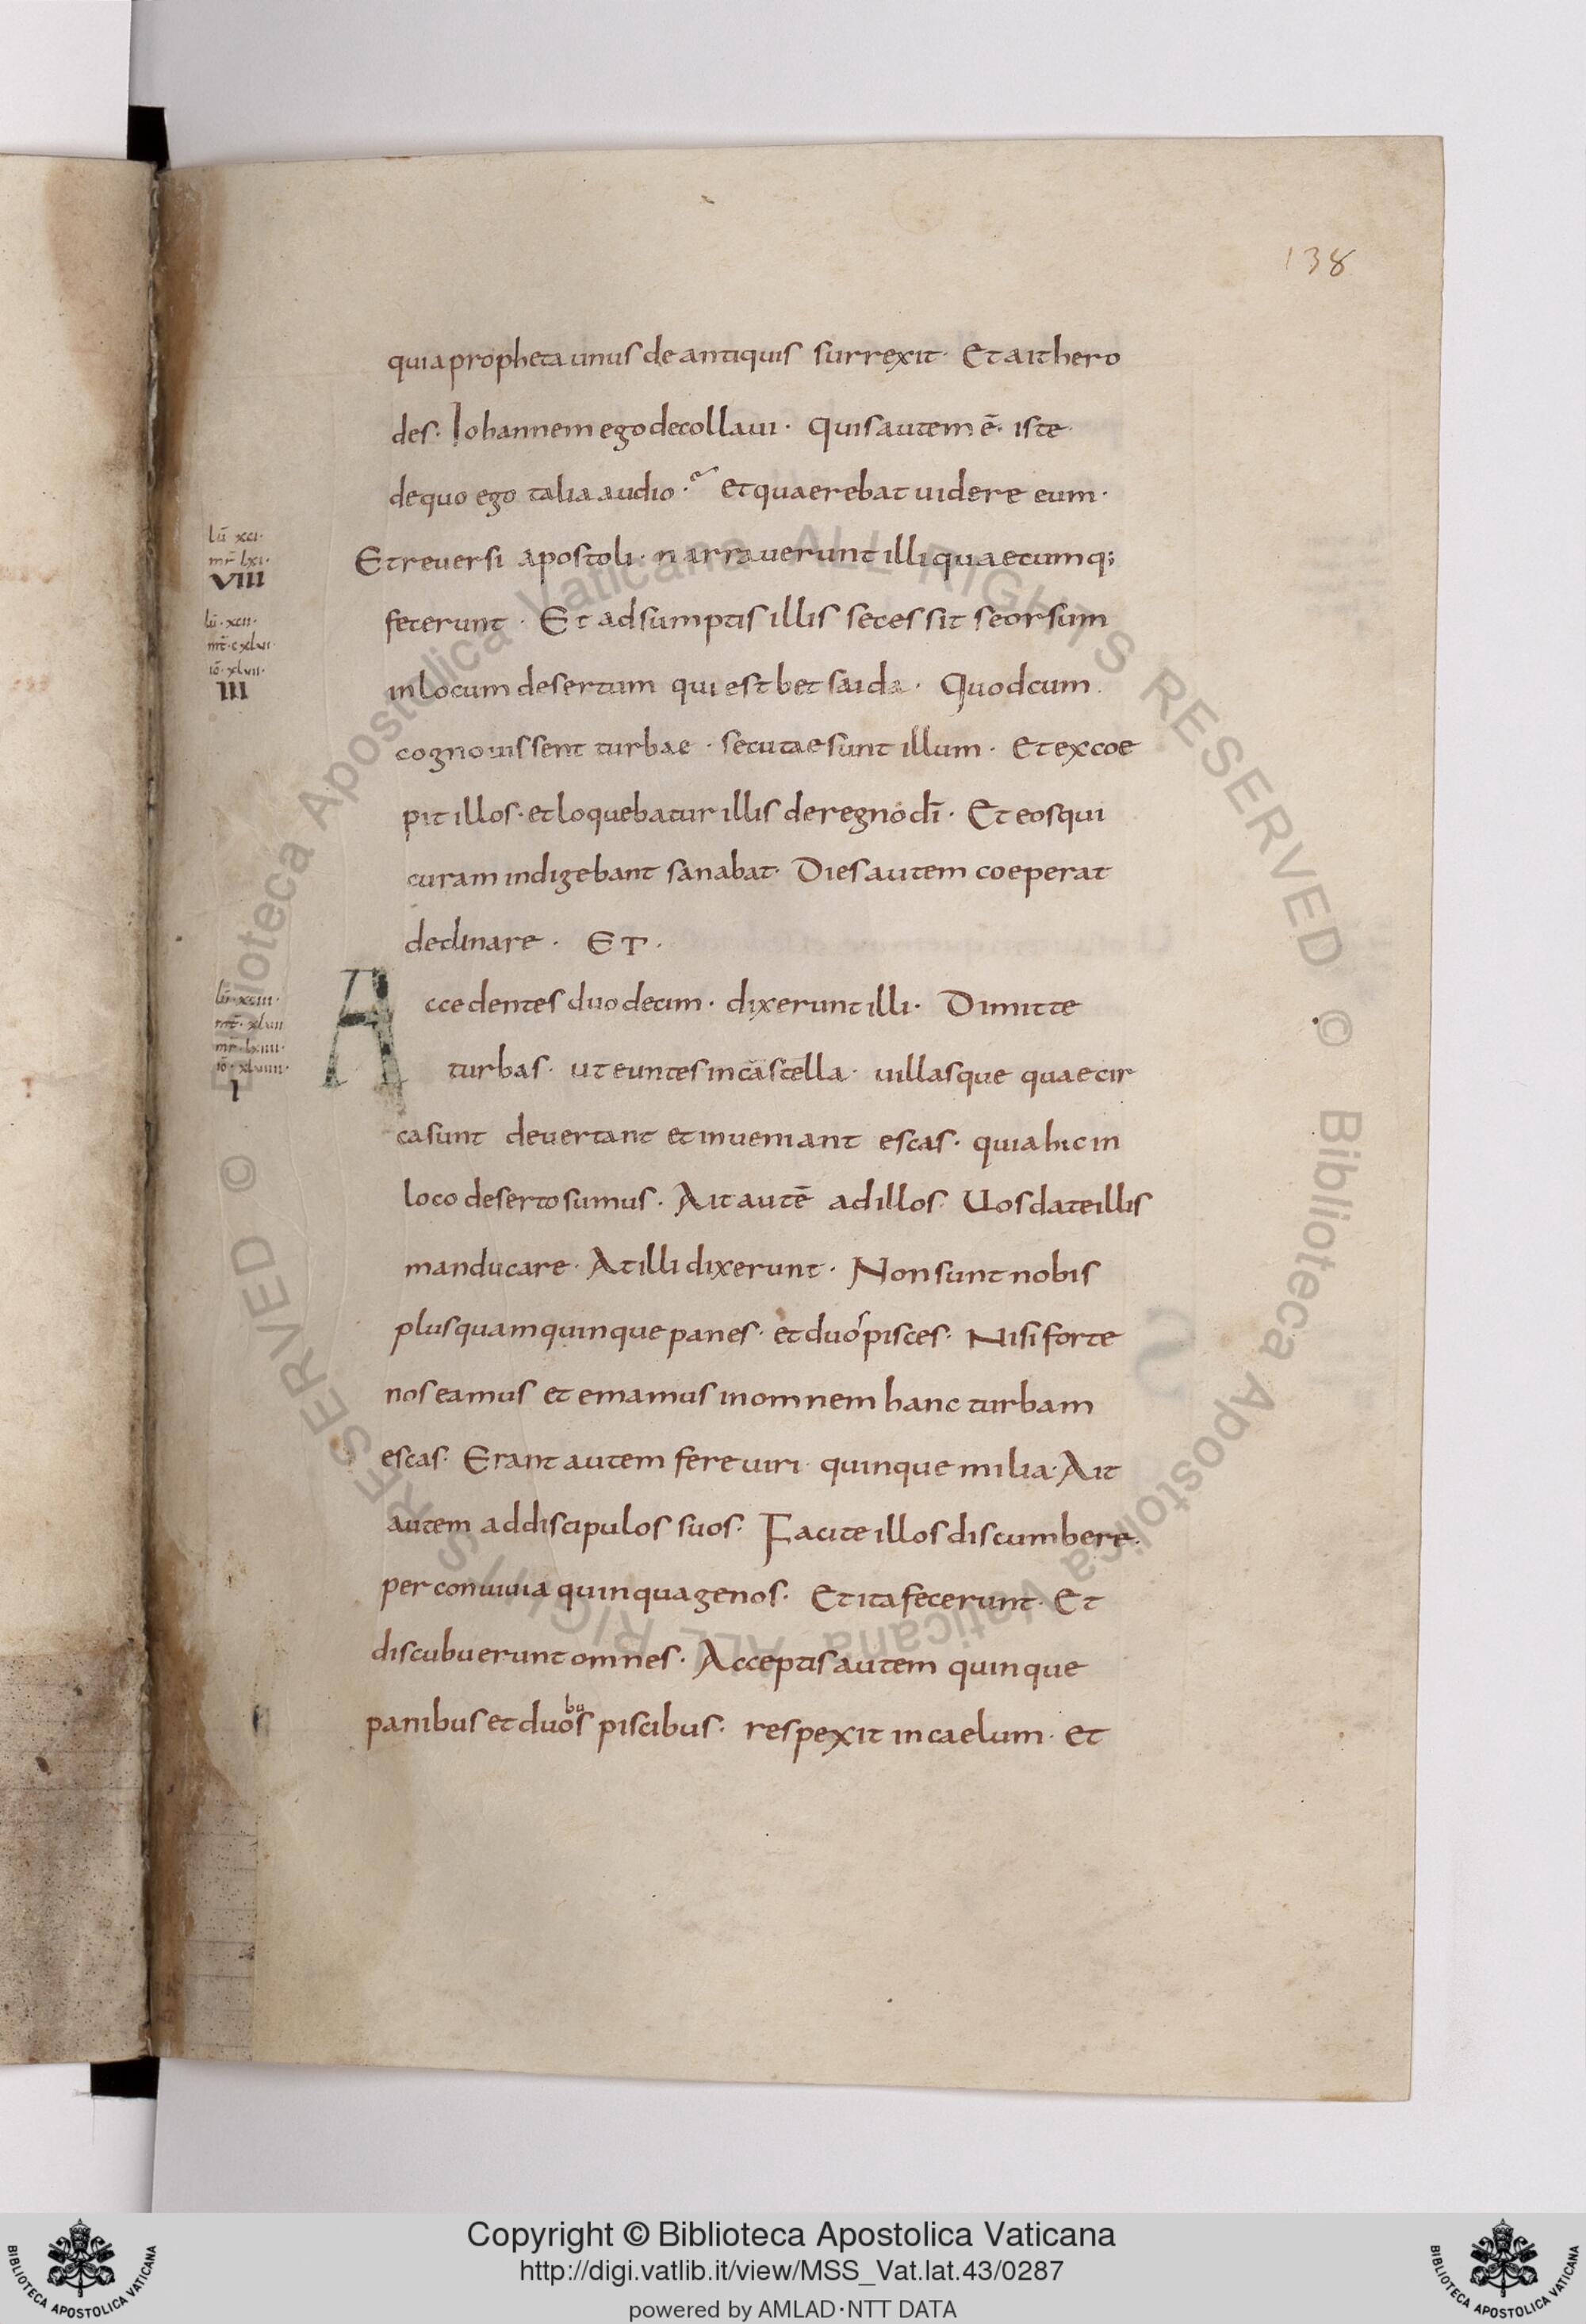 138
quia propheta unus de antiquis surrexit· Et ait hero
des· Iohannem ego decollaui· Quis autem ē· iste
de quo ego talia audio· et quaerebat uidere eum·
lū xci·
mr̄ lxi·
VIII
Et reuersi apostoli· narrauerunt illi quaecumq;
lū· xcii·
mt̄· cxlvi·
iō· xlvii·
III
fecerunt· Et adsumptis illis secessit seorsum
in locum desertum qui est betsaida· Quod cum
cognouissent turbae· secutae sunt illum· Et excoe
pit illos· et loquebatur illis de regno dī· Et eos qui
curam indigebant sanabat· Dies autem coeperat
declinare· ET·
lū· xciii·
mt̄· xlvii
mr̄· lxiiii·
iō· xlviiii·
I
Accedentes duodecim· dixerunt illi· Dimitte
turbas· ut euntes in castella· uillasque quae cir
ca sunt deuertant et inueniant escas· quia hic in
loco deserto sumus· Ait autē ad illos· Uos date illis
manducare· At illi dixerunt· Non sunt nobis
plus quam quinque panes· et duo pisces· Nisi forte
nos eamus et emamus in omnem hanc turbam
escas· Erant autem fere uiri quinque milia· Ait
autem ad discipulos suos· Facite illos discumbere·
per conuiuia quinquagenos· Et ita fecerunt· Et
discubuerunt omnes· Acceptis autem quinque
panibus et duobus piscibus· respexit in caelum· et
Copyright © Biblioteca Apostolica Vaticana
http://digi.vatlib.it/view/MSS_Vat.lat.43/0287
powered by AMLAD·NTT DATA
BIBLIOTECA APOSTOLICA VATICANA
BIBLIOTECA APOSTOLICA VATICANA
© Biblioteca Apostolica Vaticana ALL RIGHTS RESERVED © Biblioteca Apostolica Vaticana ALL RIGHTS RESERVED